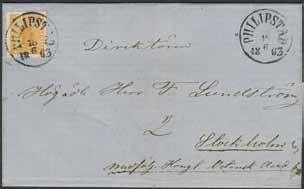 PHILIPSTAD
18
6
1863
PHILIPSTAD
18
6
1863
Direktören
Högädl Herr F. Lundström
Stockholm
Kongl